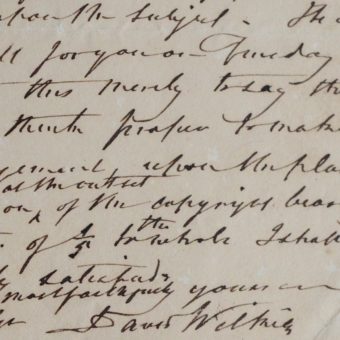 upon the subject - The
for you on Tuesday
this merely to say th
think proper to mak
gement upon the pla
at the outset
on of the copyright be
of 1/5 to the whole I shall
satisfied
most faithfully yours
David Wilkie